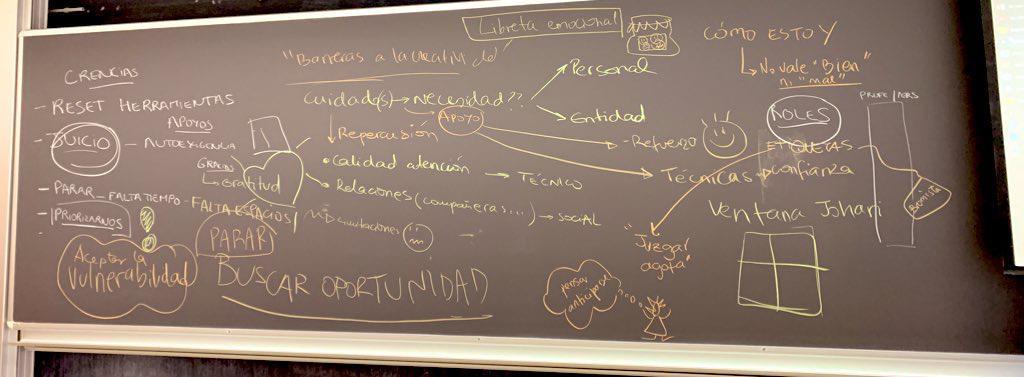 Libreta emocional
"Barreras a la creatividad"
CÓMO ESTOY
No vale "Bien"
ni "mal"
CREENCIAS
- RESET HERRAMIENTAS
APOYOS
- JUICIO - AUTOEXIGENCIA
GRACIAS
Gratitud
- PARAR - FALTA TIEMPO - FALTA ESPACIOS
- PRIORIZARNOS
-
Aceptar la
Vulnerabilidad
PARAR
BUSCAR OPORTUNIDAD
Cuidado(s) → Necesidad??
Personal
Entidad
APOYO
Repercusión
• Calidad atención → TÉCNICO
• Relaciones (compañeras...) → SOCIAL
- Refuerzo
Técnicas + confianza
ROLES
ETIQUETAS
"Juzgar
agota"
pensar
anticipado
Ventana Johari